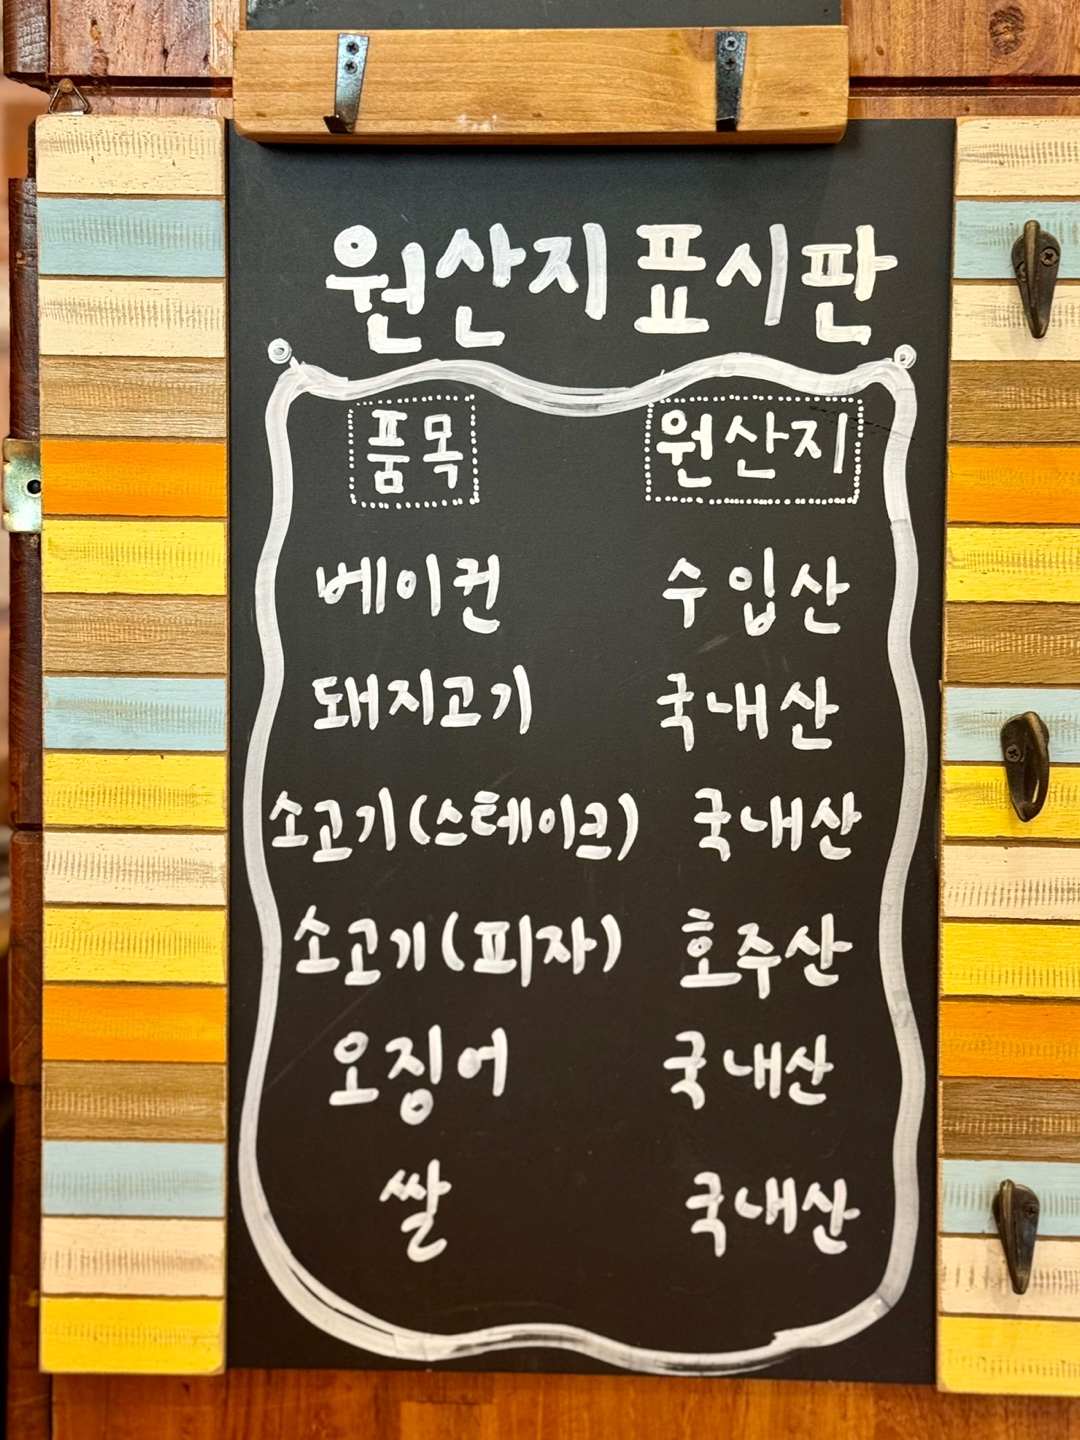 원산지 표시판
품목 원산지
베이컨 수입산
돼지고기 국내산
소고기(스테이크) 국내산
소고기(피자) 호주산
오징어 국내산
쌀 국내산